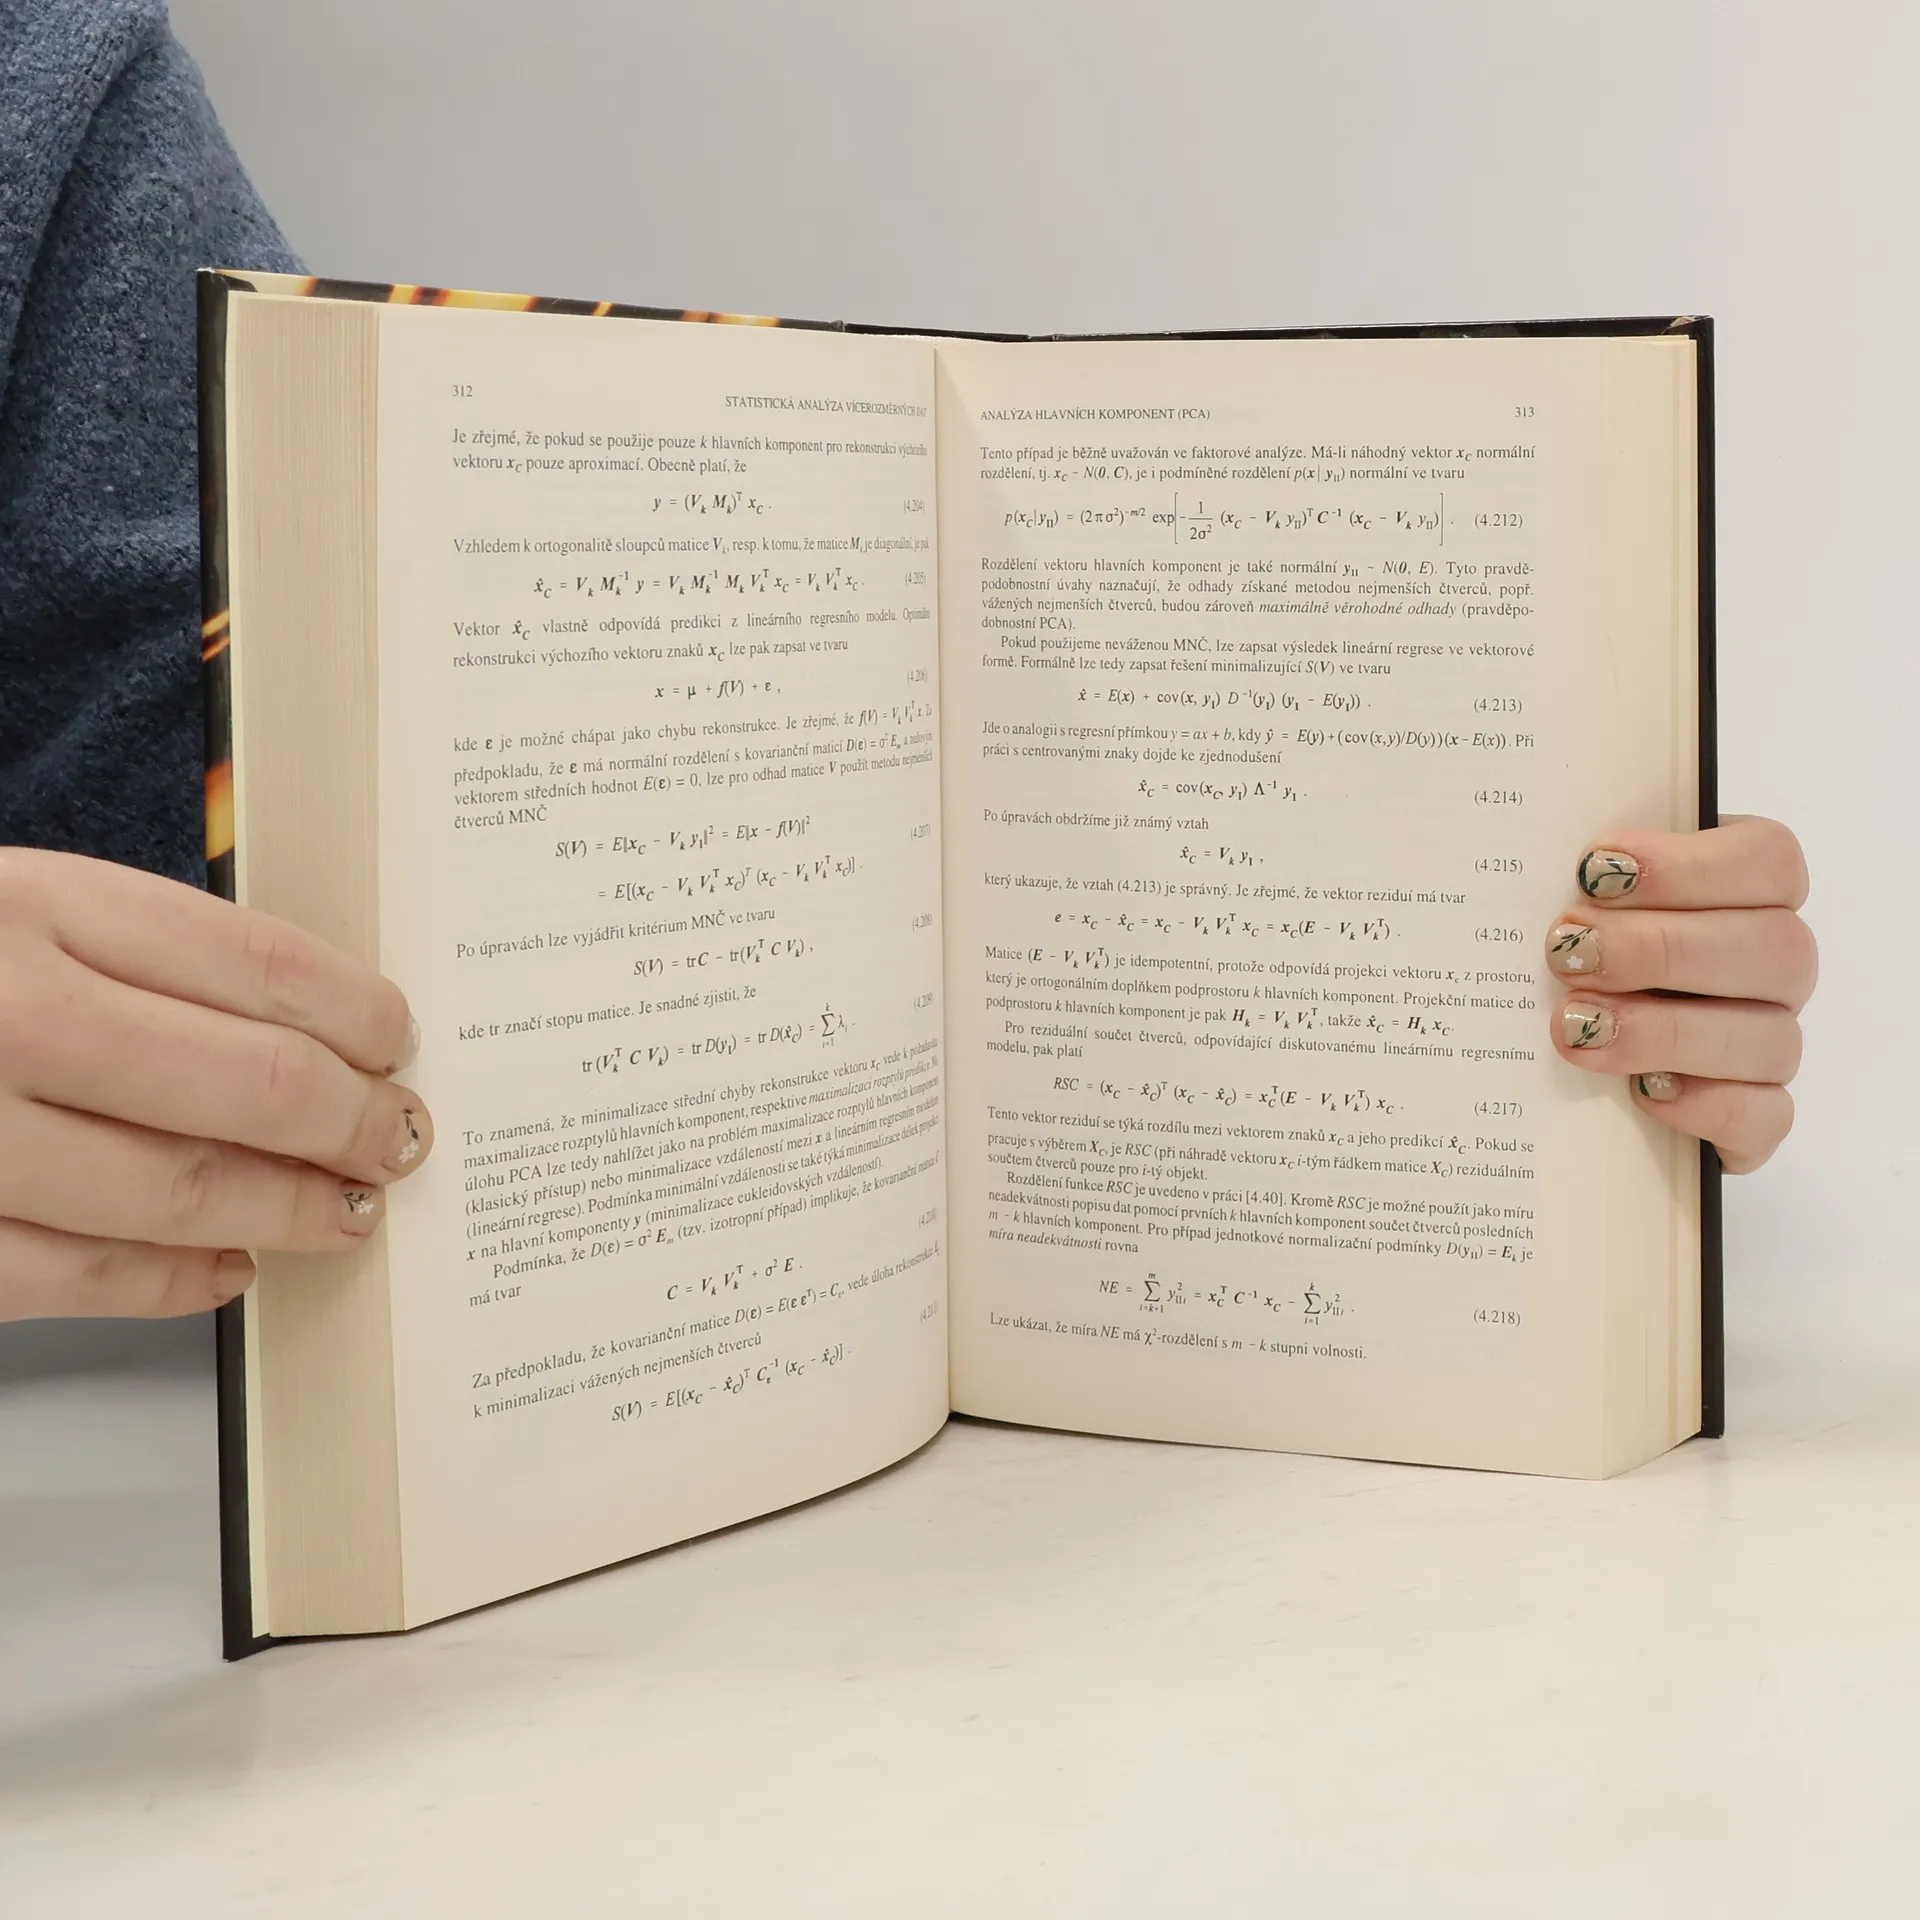 312
STATISTICKÁ ANALÝZA VÍCEROZMĚRNÝCH DAT
Je zřejmé, že pokud se použije pouze k hlavních komponent pro rekonstrukci výchozího
vektoru x_C pouze aproximací. Obecně platí, že
y = (V_k M_k)^T x_C . (4.204)
Vzhledem k ortogonalitě sloupců matice V_k, resp. k tomu, že matice M_k je diagonální, je pak
x̂_C = V_k M_k^{-1} y = V_k M_k^{-1} M_k V_k^T x_C = V_k V_k^T x_C . (4.205)
Vektor x̂_C vlastně odpovídá predikci z lineárního regresního modelu. Optimální
rekonstrukci výchozího vektoru znaků x_C lze pak zapsat ve tvaru
x = μ + f(V) + ε , (4.206)
kde ε je možné chápat jako chybu rekonstrukce. Je zřejmé, že f(V) = V_k V_k^T x. Za
předpokladu, že ε má normální rozdělení s kovarianční maticí D(ε) = σ² E_m a nulovým
vektorem středních hodnot E(ε) = 0, lze pro odhad matice V použít metodu nejmenších
čtverců MNČ
S(V) = E‖x_C - V_k y_I‖² = E‖x - f(V)‖² (4.207)
= E[(x_C - V_k V_k^T x_C)^T (x_C - V_k V_k^T x_C)] .
Po úpravách lze vyjádřit kritérium MNČ ve tvaru
S(V) = tr C - tr(V_k^T C V_k) , (4.208)
kde tr značí stopu matice. Je snadné zjistit, že
tr (V_k^T C V_k) = tr D(y_I) = tr D(x̂_C) = ∑_{i=1}^{k} λ_i . (4.209)
To znamená, že minimalizace střední chyby rekonstrukce vektoru x_C vede k požadavku
maximalizace rozptylů hlavních komponent, respektive maximalizaci rozptylů predikce. Na
úlohu PCA lze tedy nahlížet jako na problém maximalizace rozptylů hlavních komponent
(klasický přístup) nebo minimalizace vzdáleností mezi x a lineárním regresním modelem
(lineární regrese). Podmínka minimální vzdálenosti se také týká minimalizace délek projekcí
x na hlavní komponenty y (minimalizace eukleidovských vzdáleností).
Podmínka, že D(ε) = σ² E_m (tzv. izotropní případ) implikuje, že kovarianční matice C
má tvar
C = V_k V_k^T + σ² E . (4.210)
Za předpokladu, že kovarianční matice D(ε) = E(ε ε^T) = C_ε, vede úloha rekonstrukce
k minimalizaci vážených nejmenších čtverců
S(V) = E[(x_C - x̂_C)^T C_ε^{-1} (x_C - x̂_C)] . (4.211)
ANALÝZA HLAVNÍCH KOMPONENT (PCA) 313
Tento případ je běžně uvažován ve faktorové analýze. Má-li náhodný vektor x_C normální
rozdělení, tj. x_C ~ N(0, C), je i podmíněné rozdělení p(x| y_II) normální ve tvaru
p(x_C|y_II) = (2πσ²)^{-m/2} exp[-1/(2σ²) (x_C - V_k y_II)^T C^{-1} (x_C - V_k y_II)] . (4.212)
Rozdělení vektoru hlavních komponent je také normální y_II ~ N(0, E). Tyto pravdě-
podobnostní úvahy naznačují, že odhady získané metodou nejmenších čtverců, popř.
vážených nejmenších čtverců, budou zároveň maximálně věrohodné odhady (pravděpo-
dobnostní PCA).
Pokud použijeme neváženou MNČ, lze zapsat výsledek lineární regrese ve vektorové
formě. Formálně lze tedy zapsat řešení minimalizující S(V) ve tvaru
x̂ = E(x) + cov(x, y_I) D^{-1}(y_I) (y_I - E(y_I)) . (4.213)
Jde o analogii s regresní přímkou y = ax + b, kdy ŷ = E(y)+(cov(x,y)/D(y))(x-E(x)). Při
práci s centrovanými znaky dojde ke zjednodušení
x̂_C = cov(x_C, y_I) Λ^{-1} y_I . (4.214)
Po úpravách obdržíme již známý vztah
x̂_C = V_k y_I , (4.215)
který ukazuje, že vztah (4.213) je správný. Je zřejmé, že vektor reziduí má tvar
e = x_C - x̂_C = x_C - V_k V_k^T x_C = x_C(E - V_k V_k^T) . (4.216)
Matice (E - V_k V_k^T) je idempotentní, protože odpovídá projekci vektoru x_c z prostoru,
který je ortogonálním doplňkem podprostoru k hlavních komponent. Projekční matice do
podprostoru k hlavních komponent je pak H_k = V_k V_k^T, takže x̂_C = H_k x_C.
Pro reziduální součet čtverců, odpovídající diskutovanému lineárnímu regresnímu
modelu, pak platí
RSC = (x_C - x̂_C)^T (x_C - x̂_C) = x_C^T (E - V_k V_k^T) x_C . (4.217)
Tento vektor reziduí se týká rozdílu mezi vektorem znaků x_C a jeho predikcí x̂_C. Pokud se
pracuje s výběrem X_C, je RSC (při náhradě vektoru x_C i-tým řádkem matice X_C) reziduálním
součtem čtverců pouze pro i-tý objekt.
Rozdělení funkce RSC je uvedeno v práci [4.40]. Kromě RSC je možné použít jako míru
neadekvátnosti popisu dat pomocí prvních k hlavních komponent součet čtverců posledních
m - k hlavních komponent. Pro případ jednotkové normalizační podmínky D(y_II) = E_k je
míra neadekvátnosti rovna
NE = ∑_{i=k+1}^{m} y²_{IIi} = x_C^T C^{-1} x_C - ∑_{i=1}^{k} y²_{IIi} . (4.218)
Lze ukázat, že míra NE má χ²-rozdělení s m - k stupni volnosti.